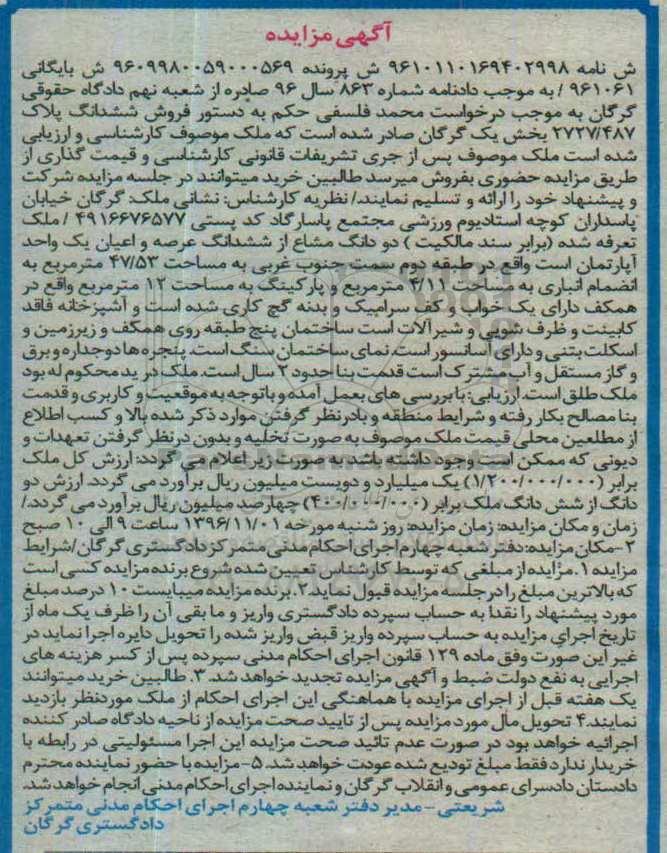 آگهی مزایده
ش نامه ۹۶۱۰۱۱۰۱۶۹۴۰۲۹۹۸ ش پرونده ۹۶۰۹۹۸۰۰۵۹۰۰۰۵۶۹ ش بایگانی
۹۶۱۰۶۱ / به موجب دادنامه شماره ۸۶۳ سال ۹۶ صادره از شعبه نهم دادگاه حقوقی
گرگان به موجب درخواست محمد فلسفی حکم به دستور فروش ششدانگ پلاک
۲۷۲۷/۴۸۷ بخش یک گرگان صادر شده است که ملک موصوف کارشناسی و ارزیابی
شده است ملک موصوف پس از جری تشریفات قانونی کارشناسی و قیمت گذاری از
طریق مزایده حضوری بفروش میرسد طالبین خرید میتوانند در جلسه مزایده شرکت
و پیشنهاد خود را ارائه و تسلیم نمایند./ نظریه کارشناس: نشانی ملک: گرگان خیابان
پاسداران کوچه استادیوم ورزشی مجتمع پاسارگاد کد پستی ۴۹۱۶۶۷۶۵۷۷ / ملک
تعرفه شده (برابر سند مالکیت ) دو دانگ مشاع از ششدانگ عرصه و اعیان یک واحد
آپارتمان است واقع در طبقه دوم سمت جنوب غربی به مساحت ۴۷/۵۳ مترمربع به
انضمام انباری به مساحت ۴/۱۱ مترمربع و پارکینگ به مساحت ۱۲ مترمربع واقع در
همکف دارای یک خواب و کف سرامیک و بدنه گچ کاری شده است و آشپزخانه فاقد
کابینت و ظرف شویی و شیرآلات است ساختمان پنج طبقه روی همکف و زیرزمین و
اسکلت بتنی و دارای آسانسور است. نمای ساختمان سنگ است. پنجره ها دوجداره و برق
و گاز مستقل و آب مشترک است قدمت بنا حدود ۲ سال است. ملک در ید محکوم له بود
ملک طلق است. ارزیابی: با بررسی های بعمل آمده و باتوجه به موقعیت و کاربری و قدمت
بنا مصالح بکار رفته و شرایط منطقه و بادرنظر گرفتن موارد ذکر شده بالا و کسب اطلاع
از مطلعین محلی قیمت ملک موصوف به صورت تخلیه و بدون درنظر گرفتن تعهدات و
دیونی که ممکن است وجود داشته باشد به صورت زیر اعلام می گردد: ارزش کل ملک
برابر (۱/۲۰۰/۰۰۰/۰۰۰) یک میلیارد و دویست میلیون ریال برآورد می گردد. ارزش دو
دانگ از شش دانگ ملک برابر (۴۰۰/۰۰۰/۰۰۰) چهارصد میلیون ریال برآورد می گردد./
زمان و مکان مزایده: زمان مزایده: روز شنبه مورخه ۱۳۹۶/۱۱/۰۱ ساعت ۹ الی ۱۰ صبح
۲ -مکان مزایده: دفتر شعبه چهارم اجرای احکام مدنی متمرکز دادگستری گرگان/شرایط
مزایده ۱. مزایده از مبلغی که توسط کارشناس تعیین شده شروع برنده مزایده کسی است
که بالاترین مبلغ را در جلسه مزایده قبول نماید ۲. برنده مزایده میبایست ۱۰ درصد مبلغ
مورد پیشنهاد را نقدا به حساب سپرده دادگستری واریز و ما بقی آن را ظرف یک ماه از
تاریخ اجرای مزایده به حساب سپرده واریز قبض واریز شده را تحویل دایره اجرا نماید در
غیر این صورت وفق ماده ۱۲۹ قانون اجرای احکام مدنی سپرده پس از کسر هزینه های
اجرایی به نفع دولت ضبط و آگهی مزایده تجدید خواهد شد. ۳. طالبین خرید میتوانند
یک هفته قبل از اجرای مزایده با هماهنگی این اجرای احکام از ملک موردنظر بازدید
نمایند. ۴ تحویل مال مورد مزایده پس از تایید صحت مزایده از ناحیه دادگاه صادر کننده
اجرائیه خواهد بود در صورت عدم تائید صحت مزایده این اجرا مسئولیتی در رابطه با
خریدار ندارد فقط مبلغ تودیع شده عودت خواهد شد. ۵-مزایده با حضور نماینده محترم
دادستان دادسرای عمومی و انقلاب گرگان و نماینده اجرای احکام مدنی انجام خواهد شد.
شریعتی - مدیر دفتر شعبه چهارم اجرای احکام مدنی متمرکز
دادگستری گرگان